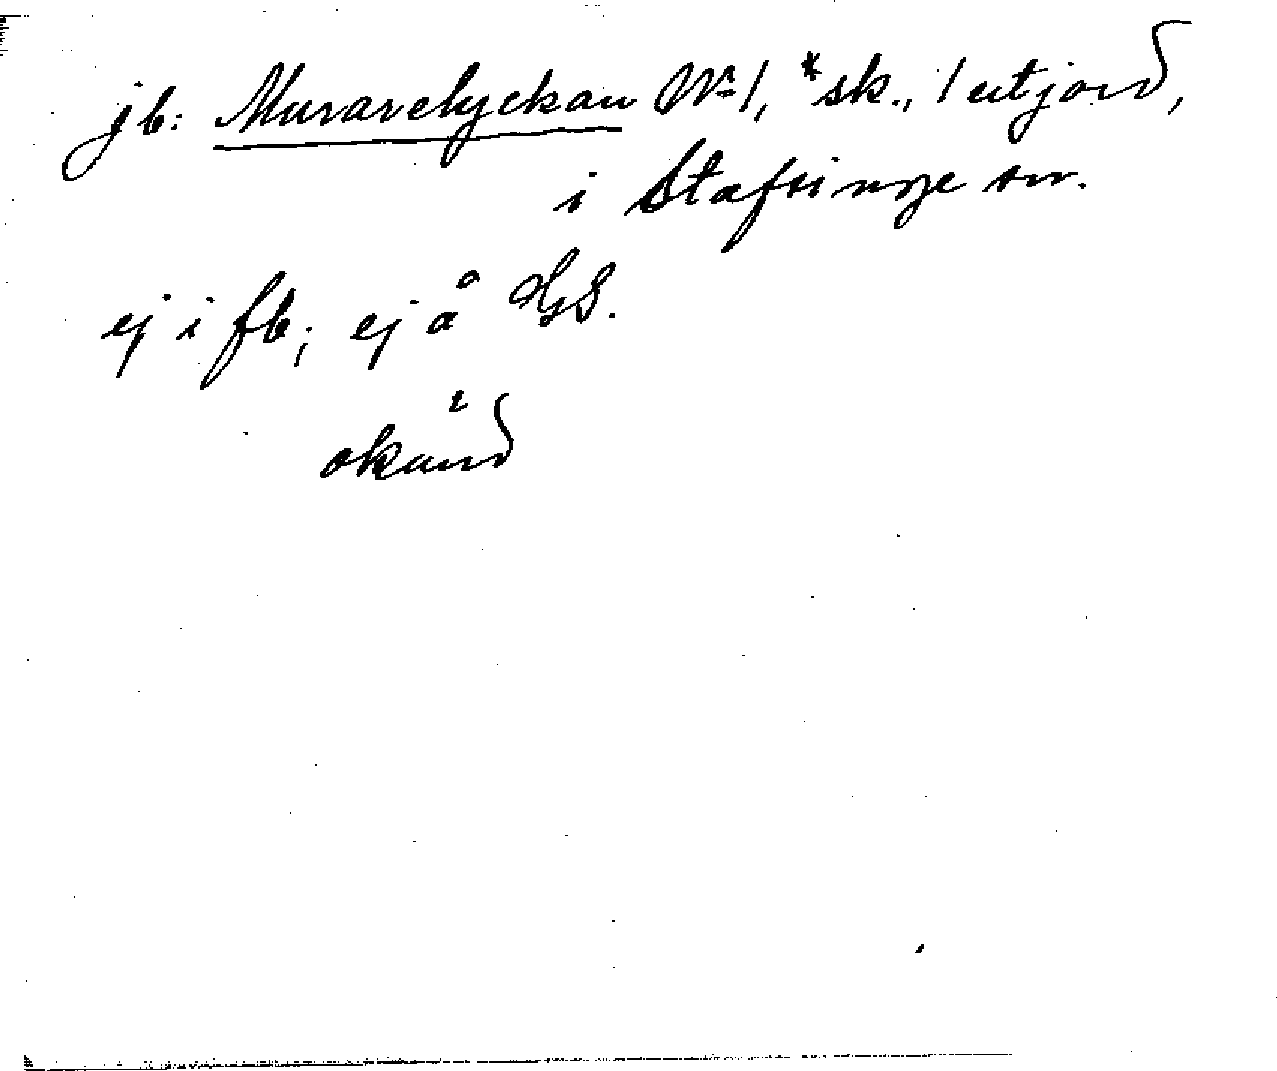 jb: Muravelyckan No 1, *sk., 1 utjord,
i Stafsinge sn.
ej i fb; ej å GS.
okänd